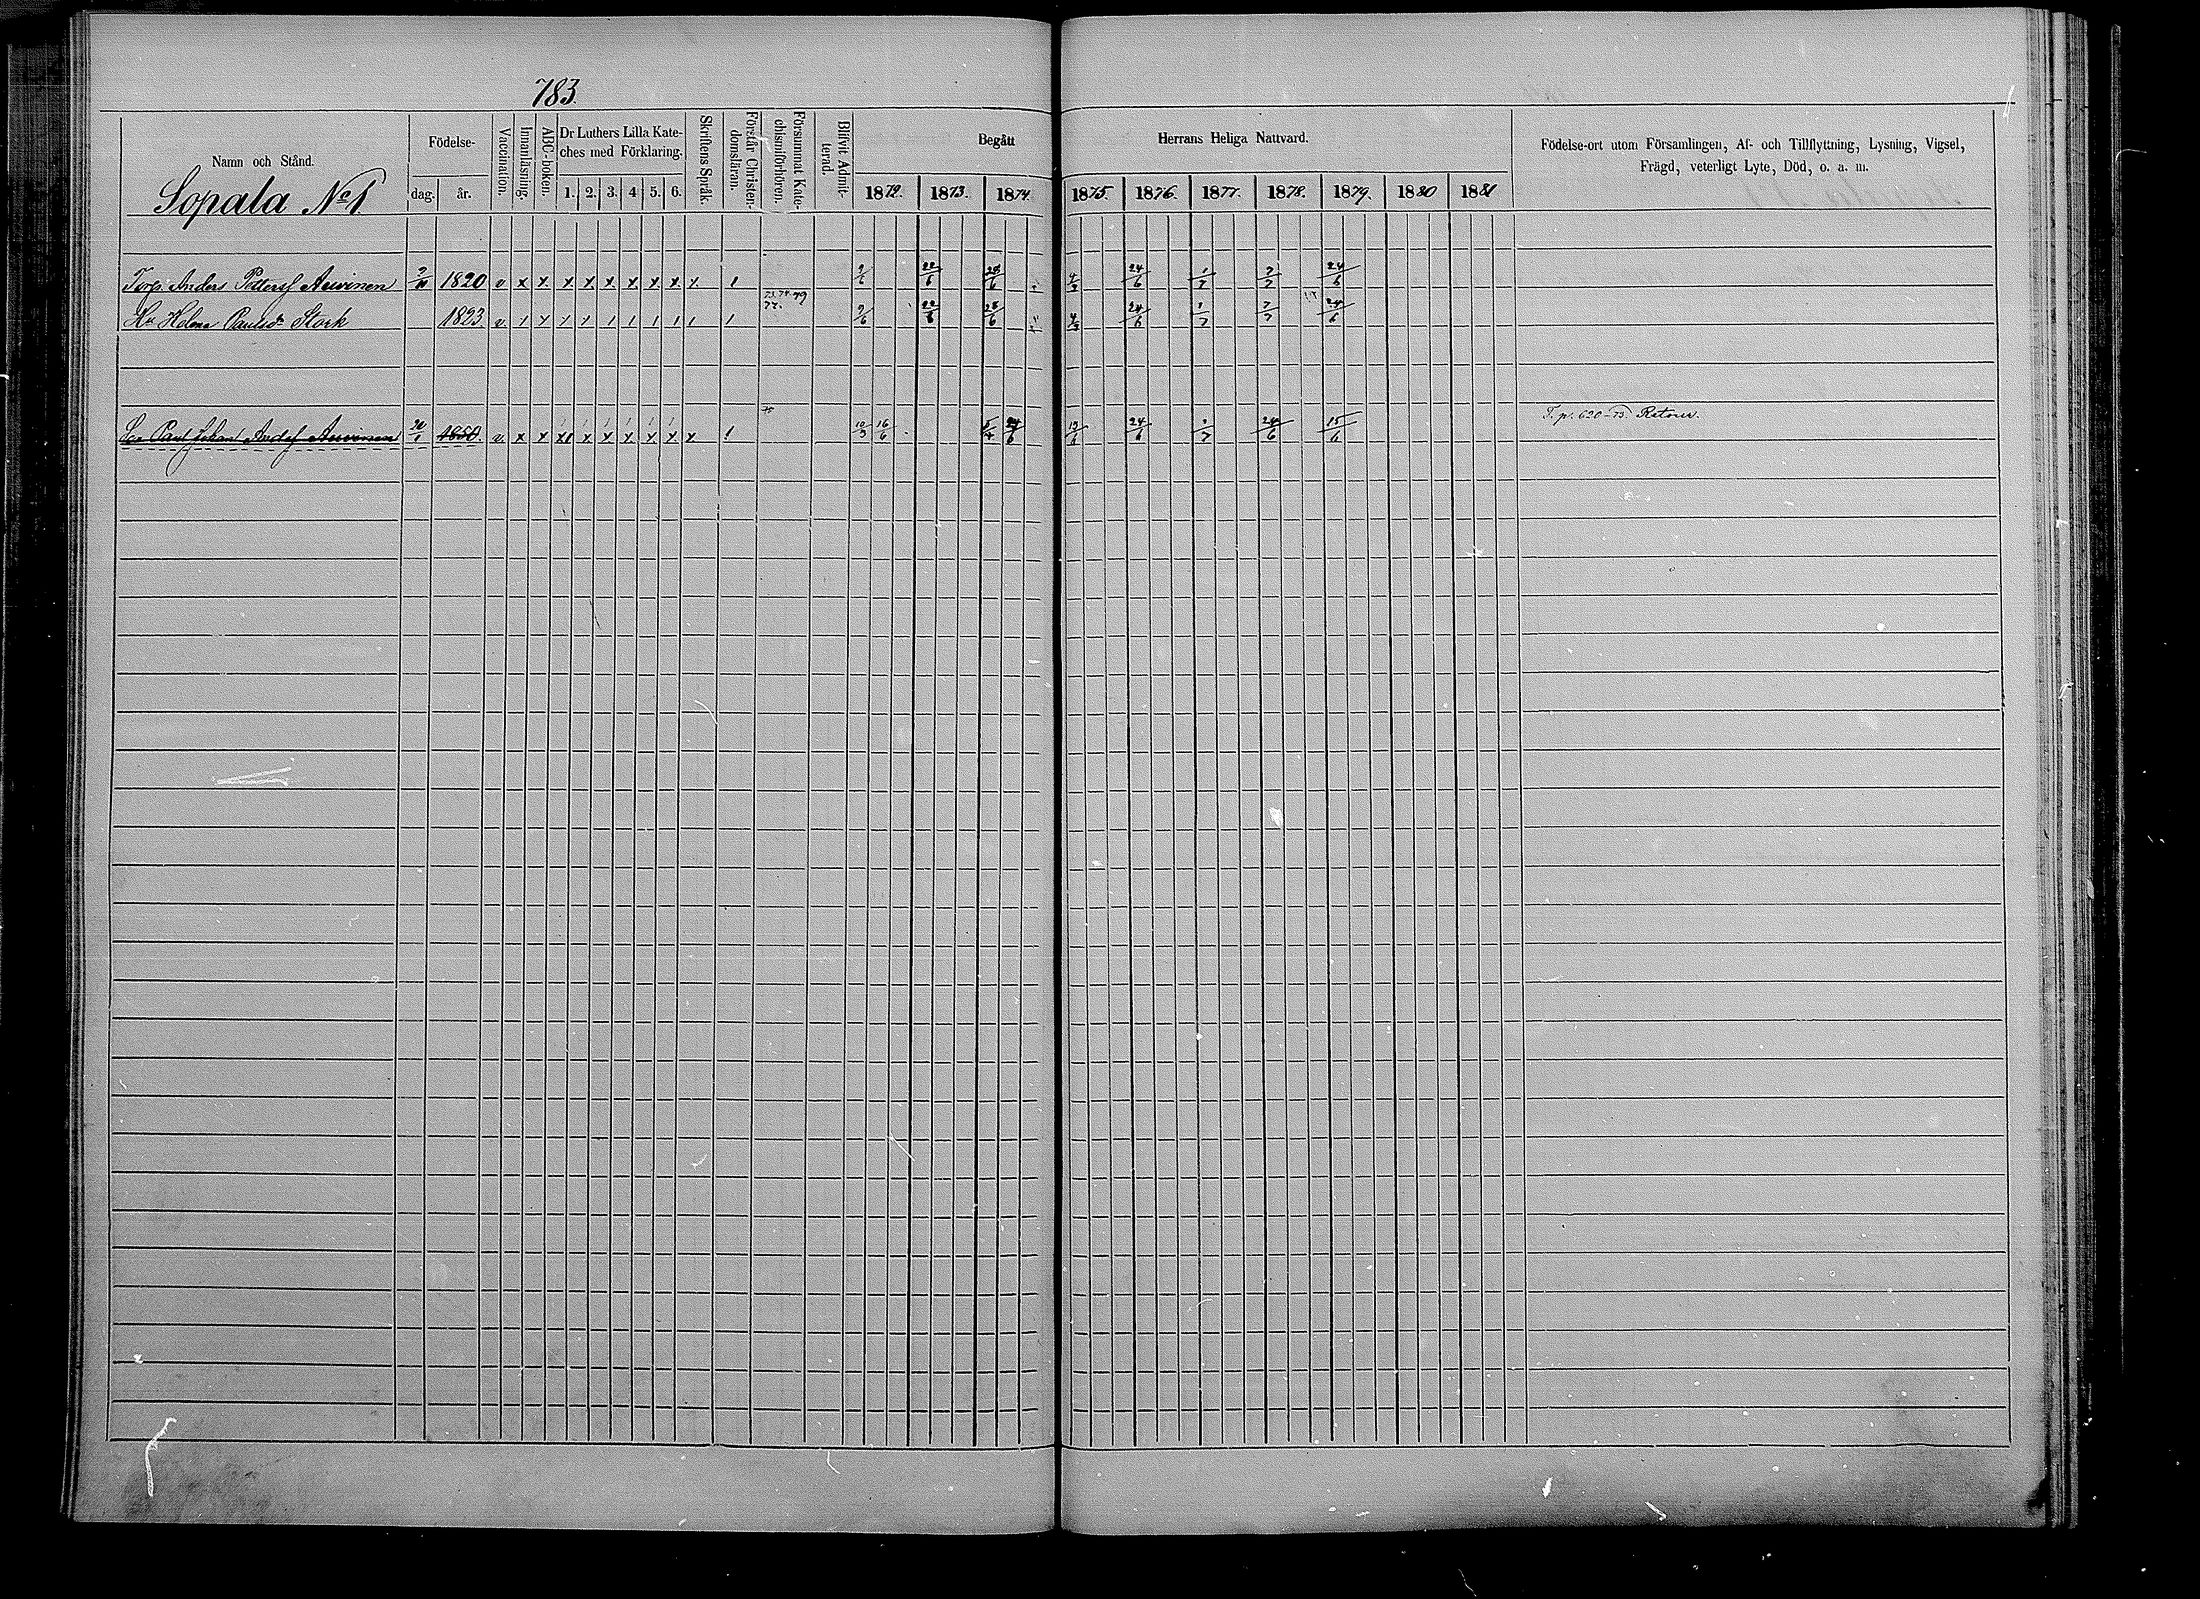 783.
Namn och Stånd.
Sopala No 1
Födelse-
dag. år.
Vaccination.
Innanläsning.
ABC-boken.
Dr Luthers Lilla Kate-
ches med Förklaring.
1. 2. 3. 4 5. 6.
Skriftens Språk.
Förstår Christen-
domsläran.
Försummat Kate-
chismiförhören.
Blifvit Admit-
terad.
Begått Herrans Heliga Nattvard.
1872. 1873. 1874. 1875. 1876. 1877. 1878. 1879. 1880 1881
Födelse-ort utom Församlingen, Af- och Tillflyttning, Lysning, Vigsel,
Frägd, veterligt Lyte, Död, o. a. m.
Torp. Anders Petterss Auvinen 1820 v x x x x x x x x x 1 9/6 22/6 28/6 4/7 24/6 1/7 7/7 24/6
Hu Helena Paulsdr Stork 1823 v 77. 79 9/6 22/6 28/6 4/7 24/6 1/7 7/7 24/6
Son Paul Johan Anderss Auvinen 20/1 1850. v x x 10/3 16/6 24/6 13/6 24/6 1/7 24/6 15/6 T. p. 620 - 73. Retour.